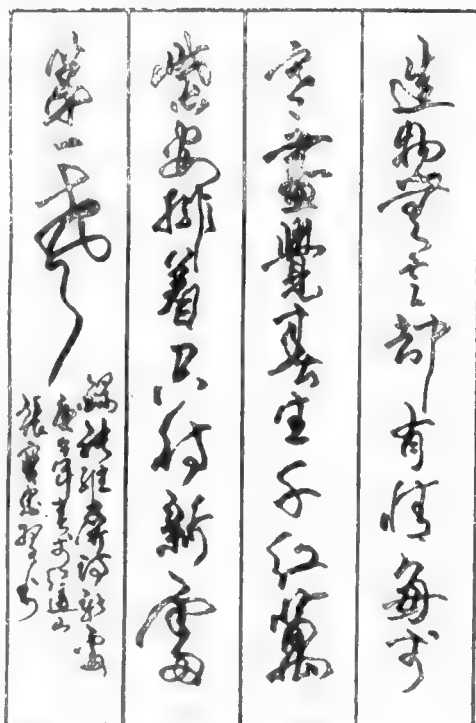 造物無言却有情每於
寒盡覺春生千紅萬
紫安排着只待新雷
第一聲
錄張維屏詩新雷
庚午年春於山
張寶書